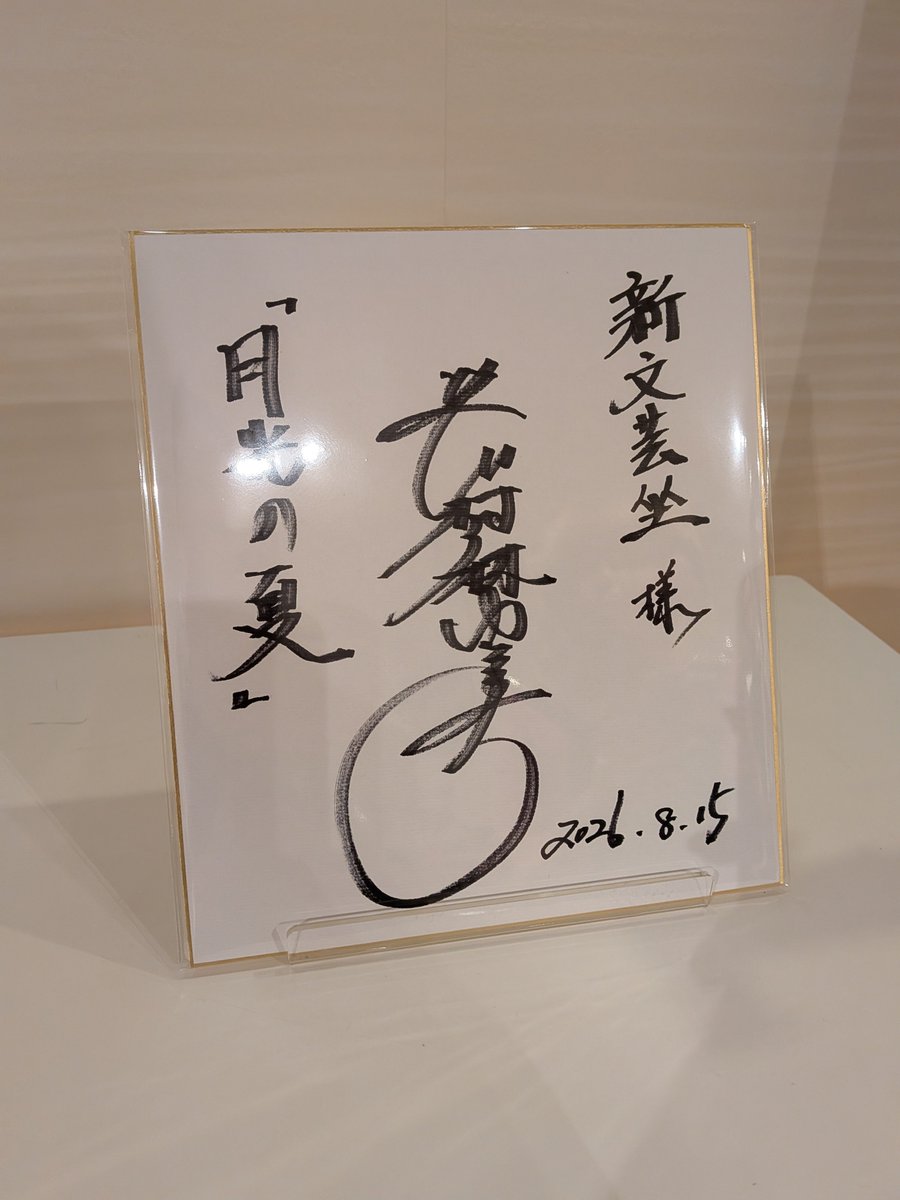 新文芸坐様
若村麻由美
「月光の夏」
2026.8.15